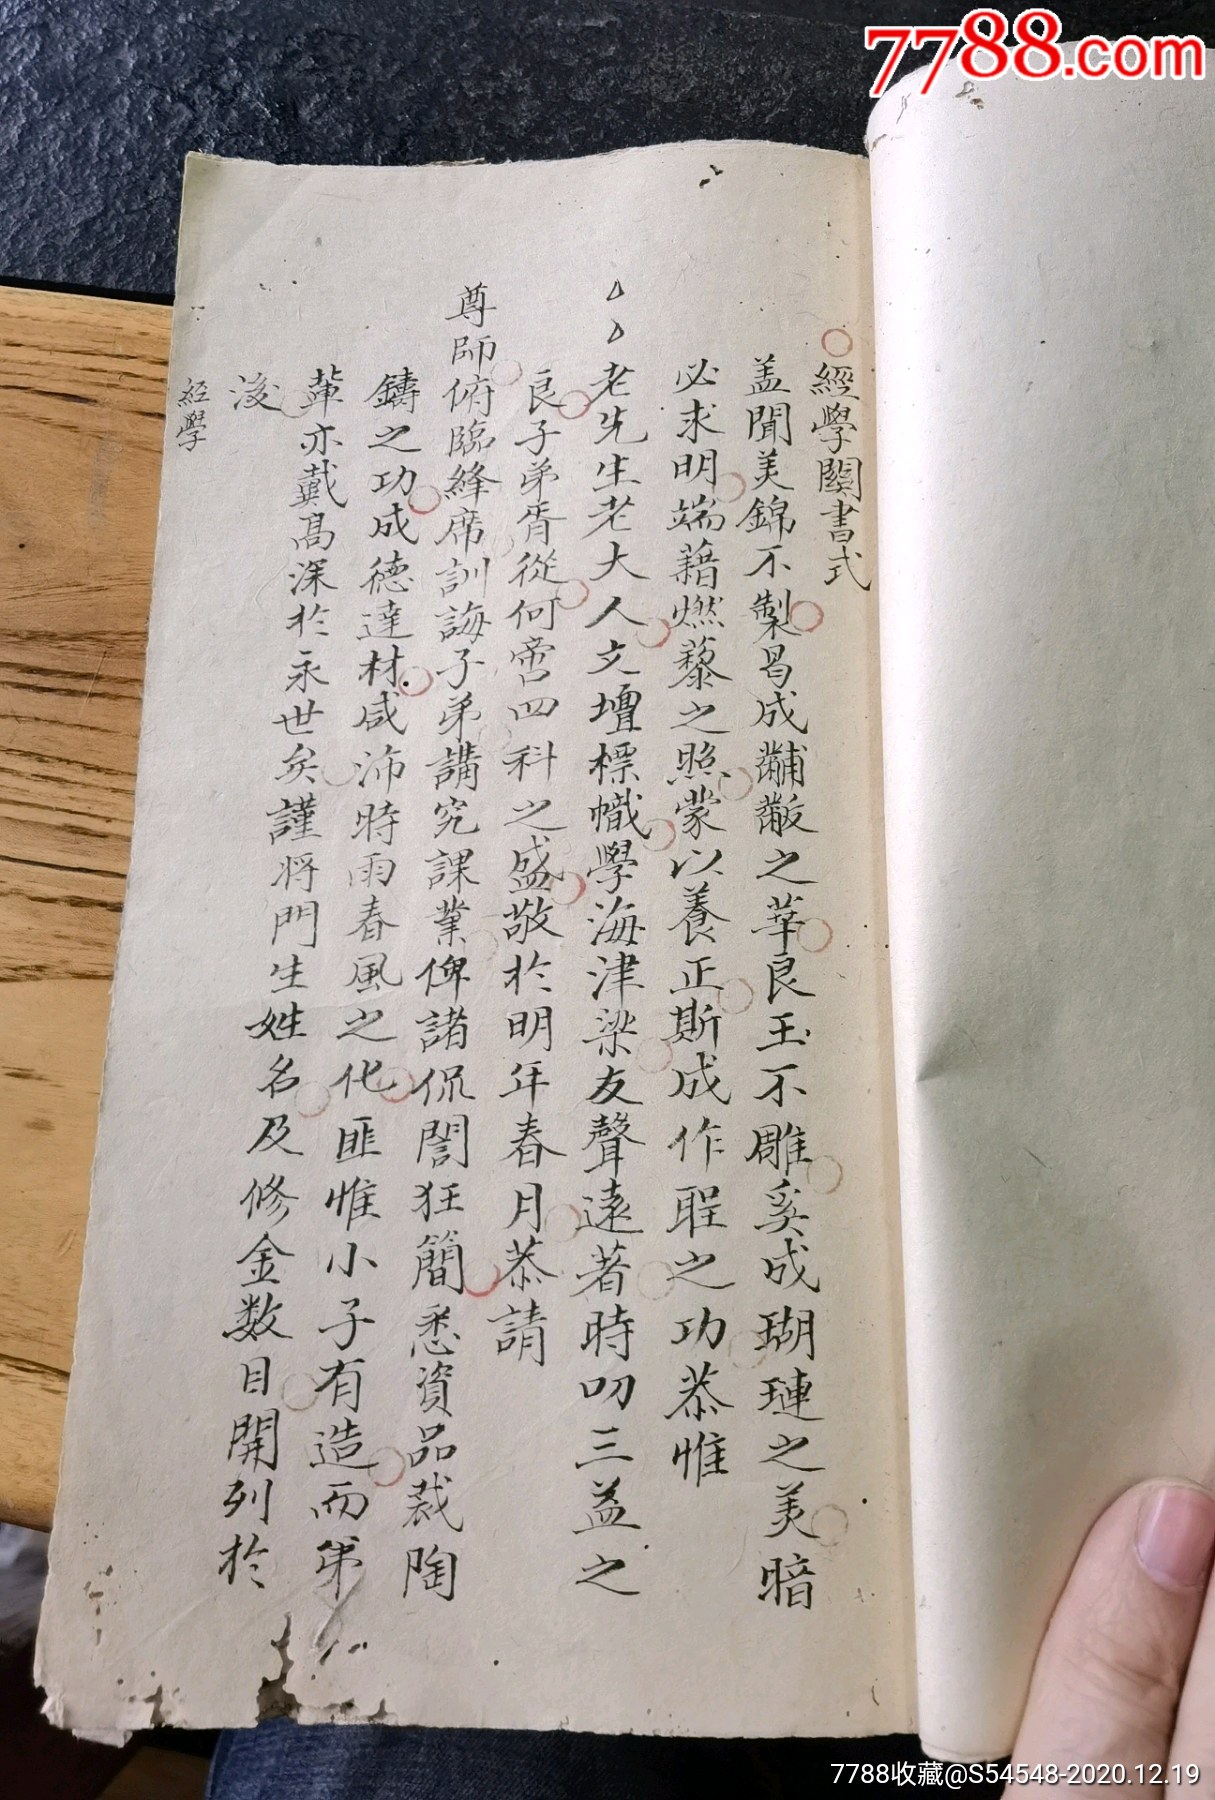 7788.com
經學関書式
盖聞美錦不製曷成黼黻之華良玉不雕奚成瑚璉之美暗
必求明端藉燃藜之照蒙以養正斯成作聖之功恭惟
老先生老大人文壇標幟學海津梁友聲遠著時叨三益之
良子弟胥從何啻四科之盛敬於明年春月恭請
尊師俯臨絳席訓誨子弟講究課業俾諸侃誾狂簡悉資品裁陶
鑄之功成德達材咸沛時雨春風之化匪惟小子有造而弟
輩亦戴高深於永世矣謹将門生姓名及修金数目開列於
後
經學
7788收藏@S54548-2020.12.19